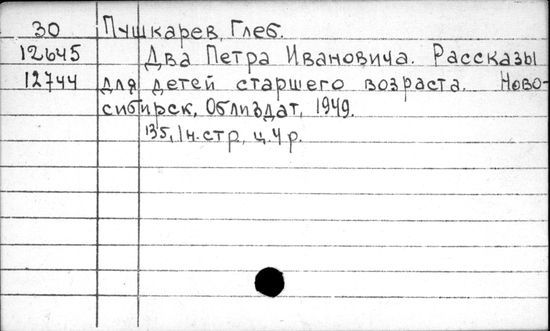 30 Пушкарев, Глеб.
12645 Два Петра Ивановича. Рассказы
12744 для детей старшего возраста. Ново-
сибирск, Облиздат, 1949.
135, 1 н. стр, ц. 4 р.